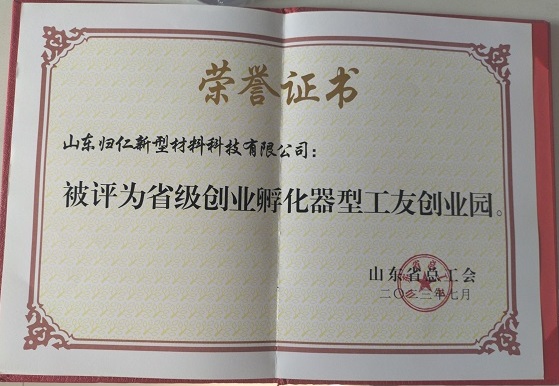 荣誉证书
山东归仁新型材料科技有限公司：
被评为省级创业孵化器型工友创业园。
山东省总工会
二〇二二年七月